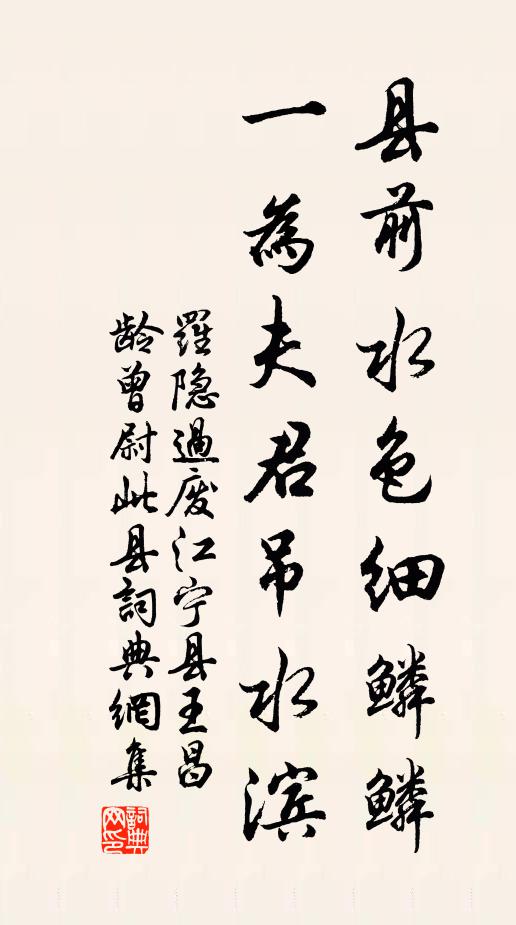 县前水色细鳞鳞
一為夫君吊水滨
羅隐過废江宁县王昌
龄曾尉此县詞典網集
詞典
网印